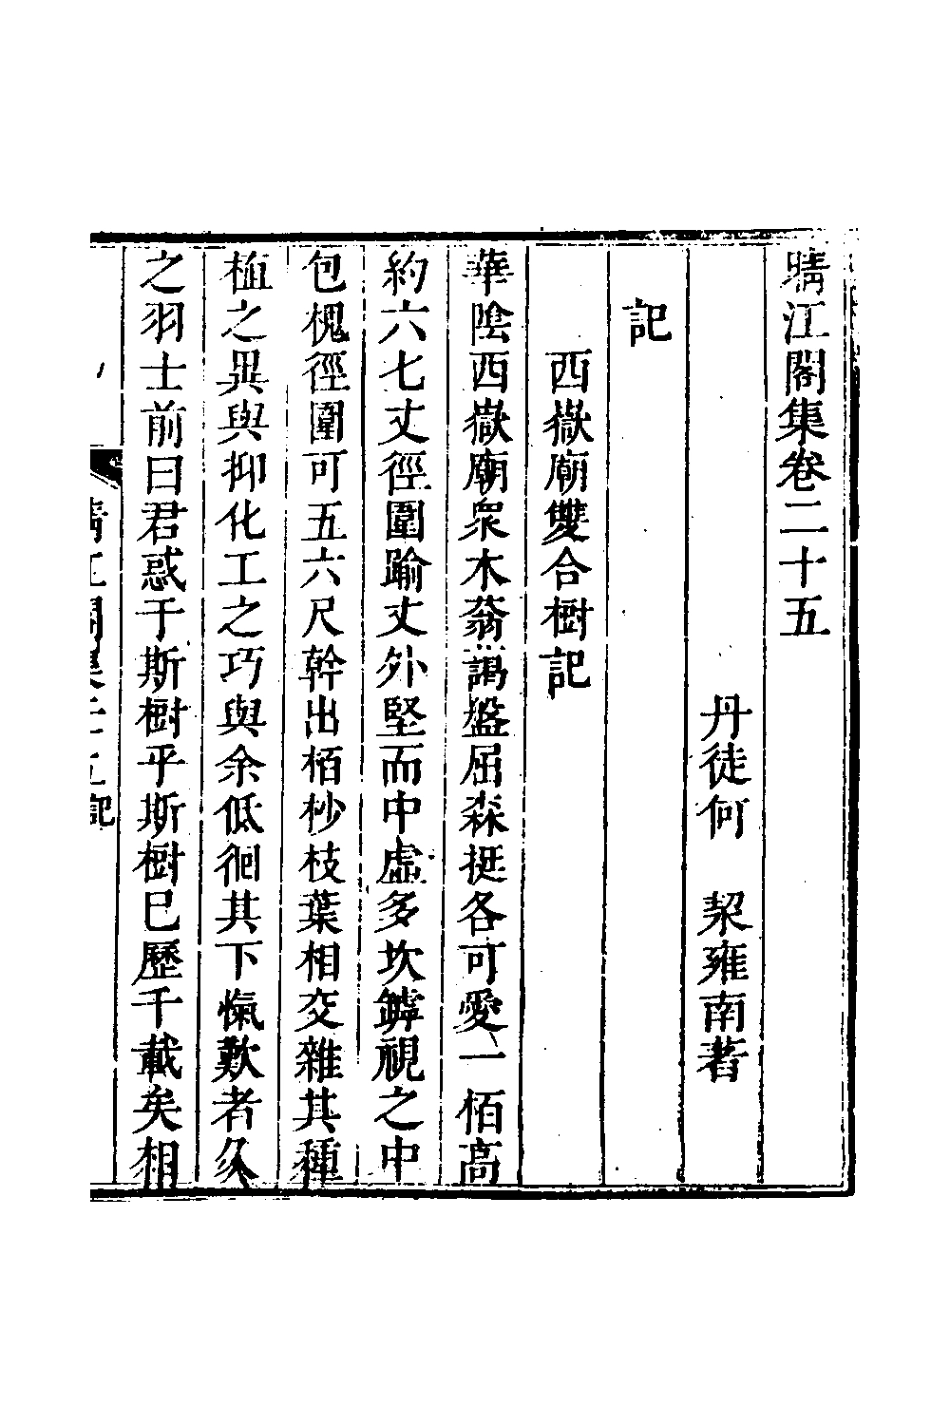 晴江閣集卷二十五
丹徒何　㓗雍南著
記
西嶽廟雙合樹記
華陰西嶽廟衆木蓊謁盤屈森挺各可愛一栢高
約六七丈徑圍踰丈外堅而中虛多坎罅視之中
包槐徑圍可五六尺幹出栢杪枝葉相交雜其種
植之異與抑化工之巧與余低徊其下愾歎者久
之羽士前曰君惑于斯樹乎斯樹巳歷千載矣相